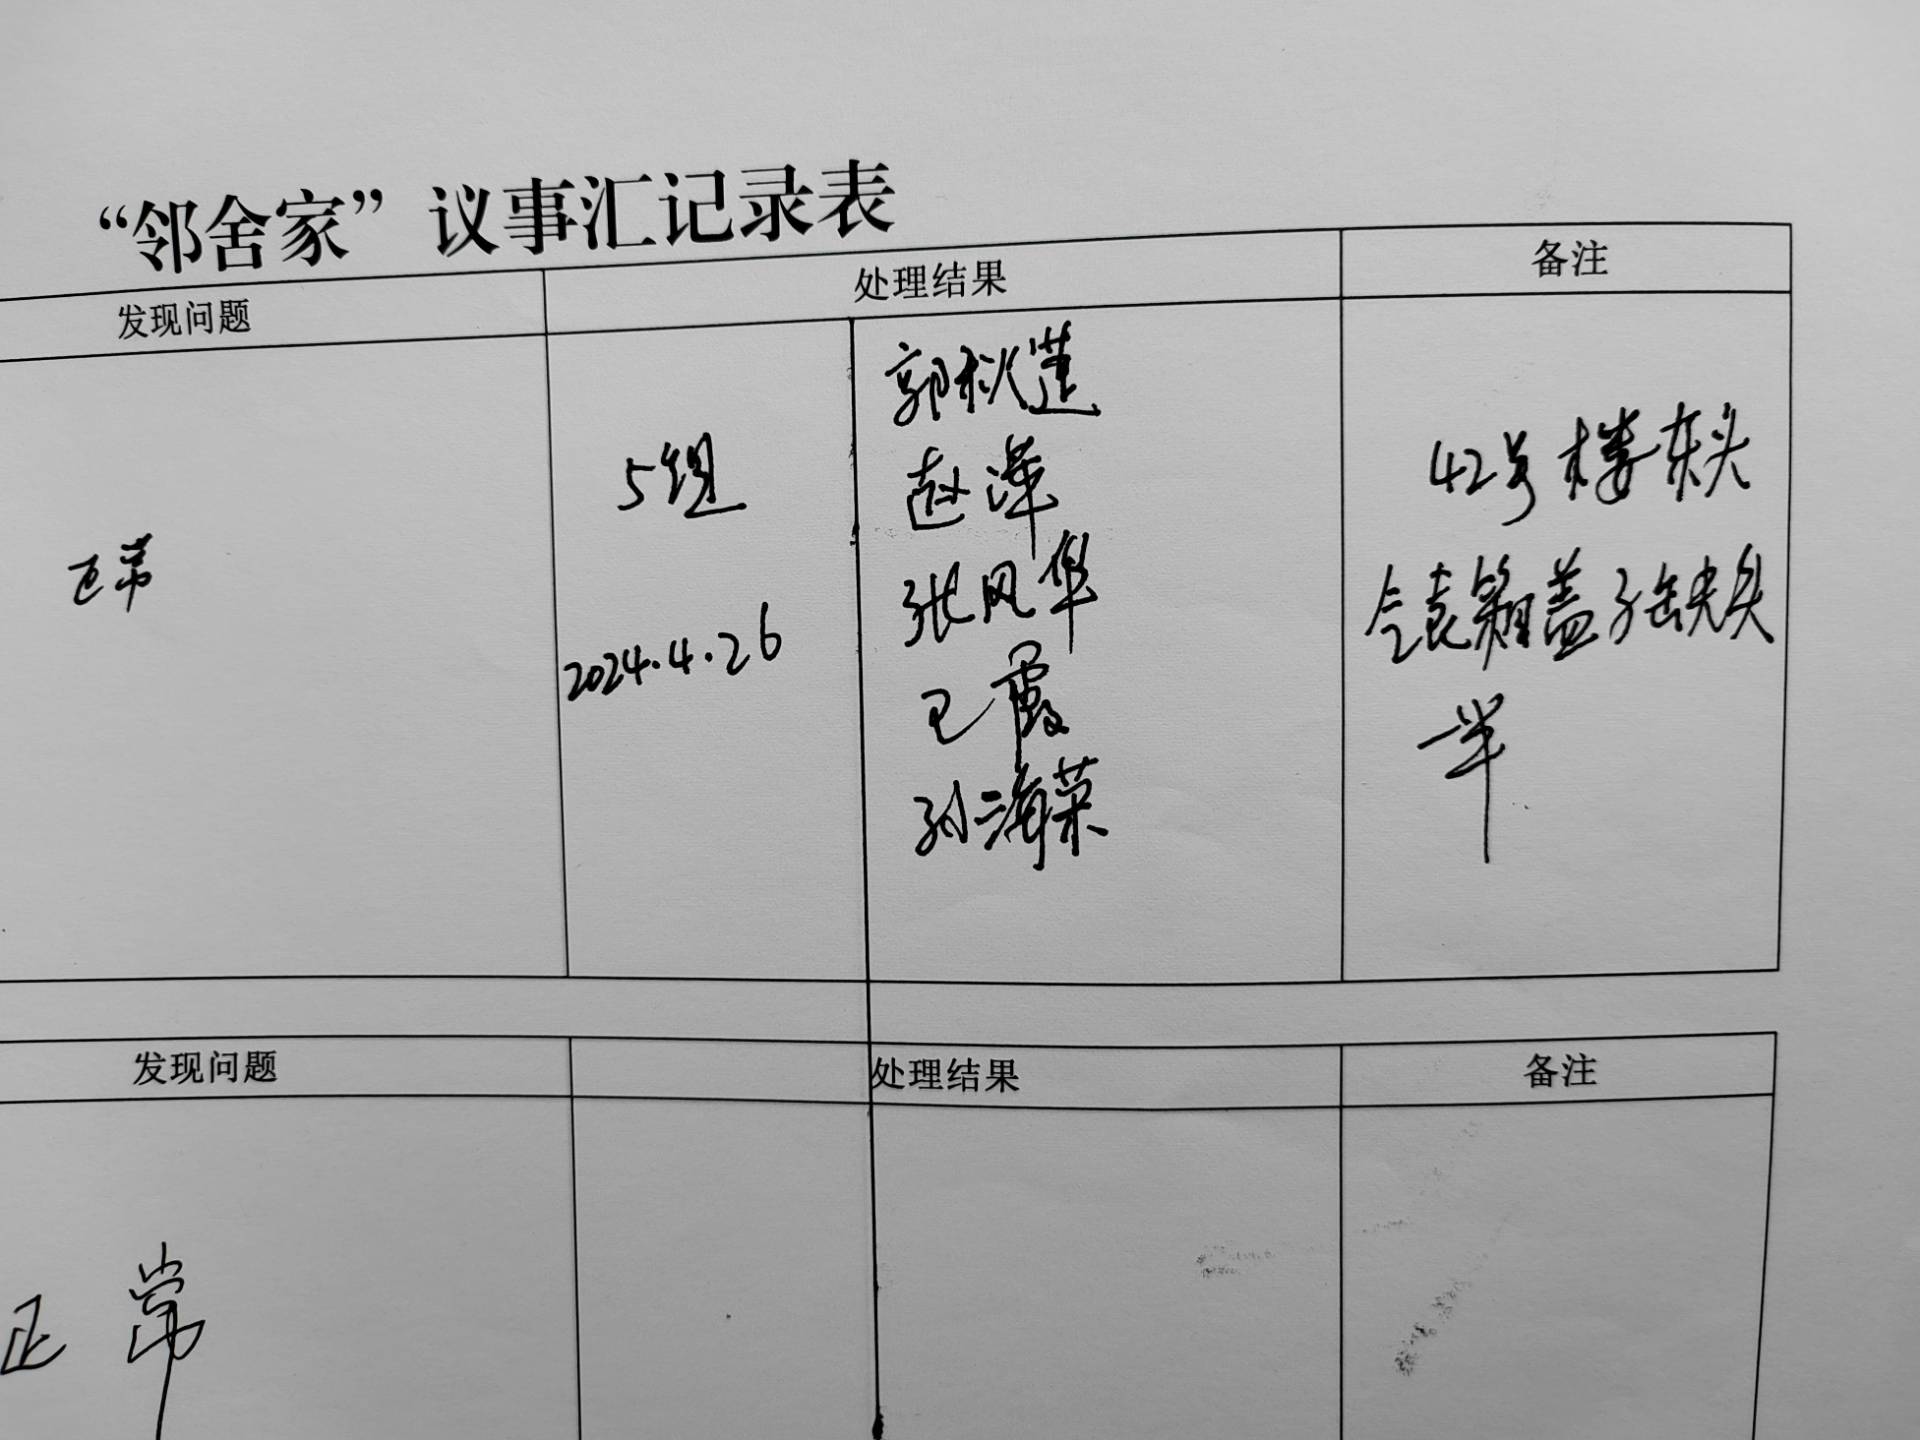 “邻舍家”议事汇记录表
发现问题 处理结果 备注
正常
5组
2024.4.26
郭秋莲
赵泽
张凤华
王霞
孙海荣
42号楼东头
气表箱盖子缺失
一半
发现问题 处理结果 备注
正常